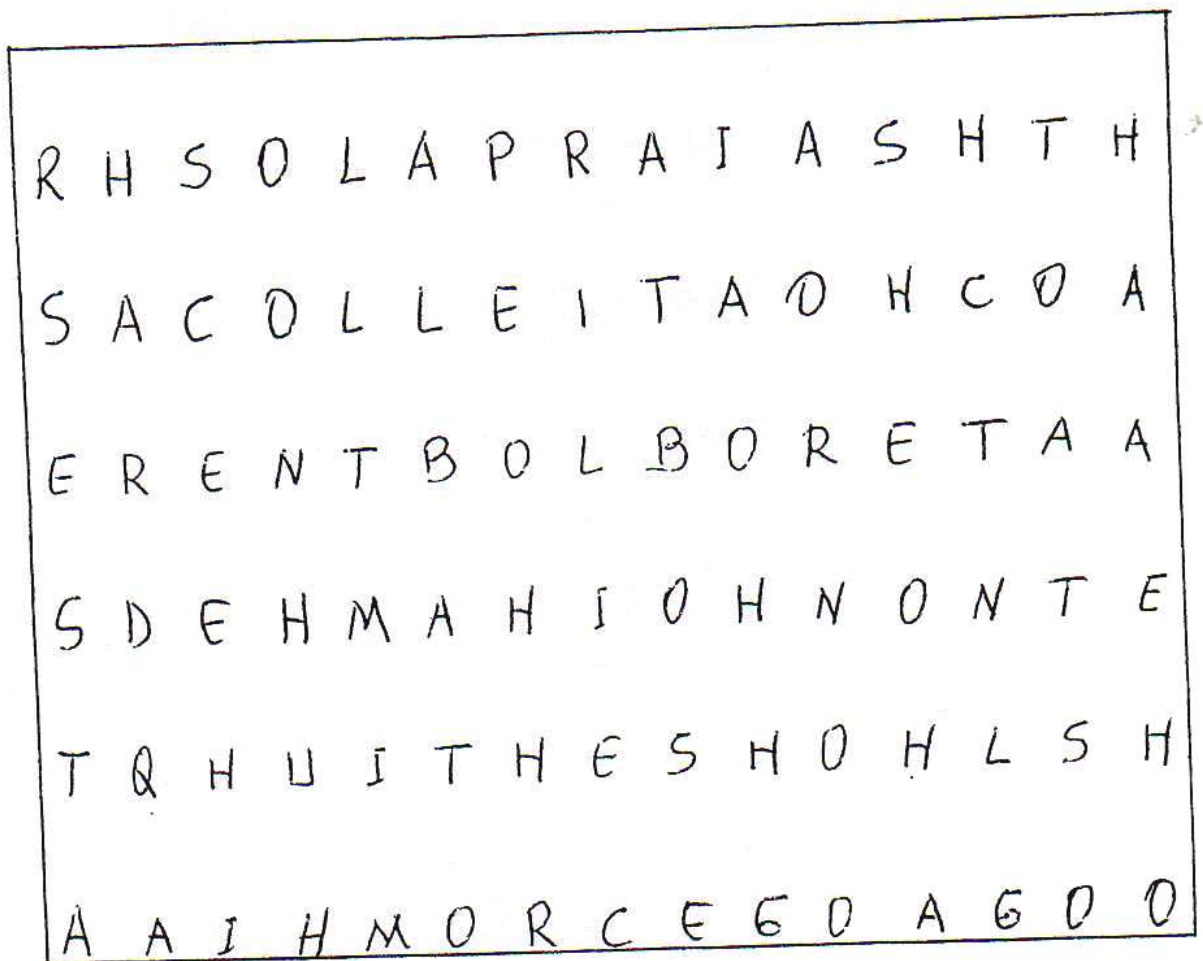 R H S O L A P R A I A S H T H
S A C O L L E I T A O H C O A
E R E N T B O L B O R E T A A
S D E H M A H I O H N O N T E
T Q H U I T H E S H O H L S H
A A I H M O R C E G O A G O O